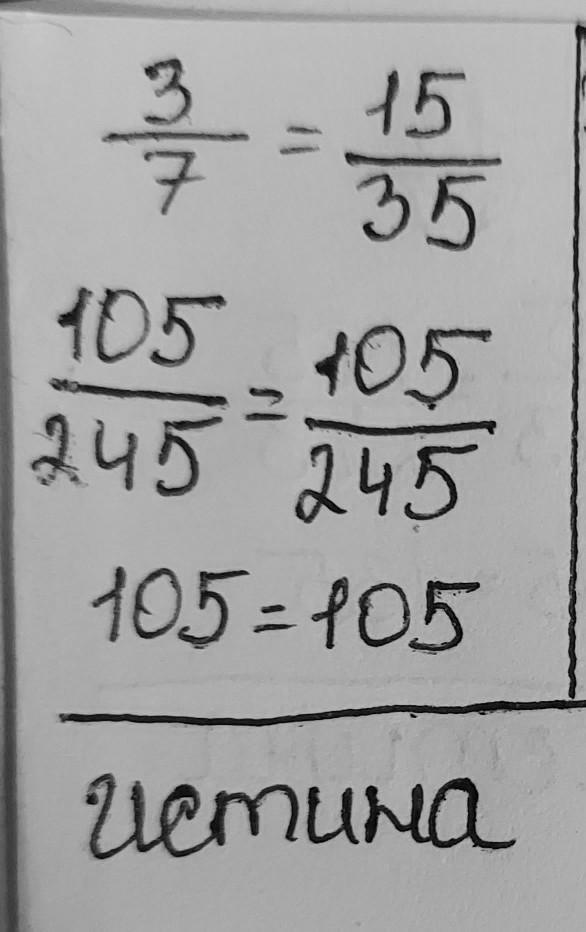 3/7 = 15/35
105/245 = 105/245
105 = 105
истина